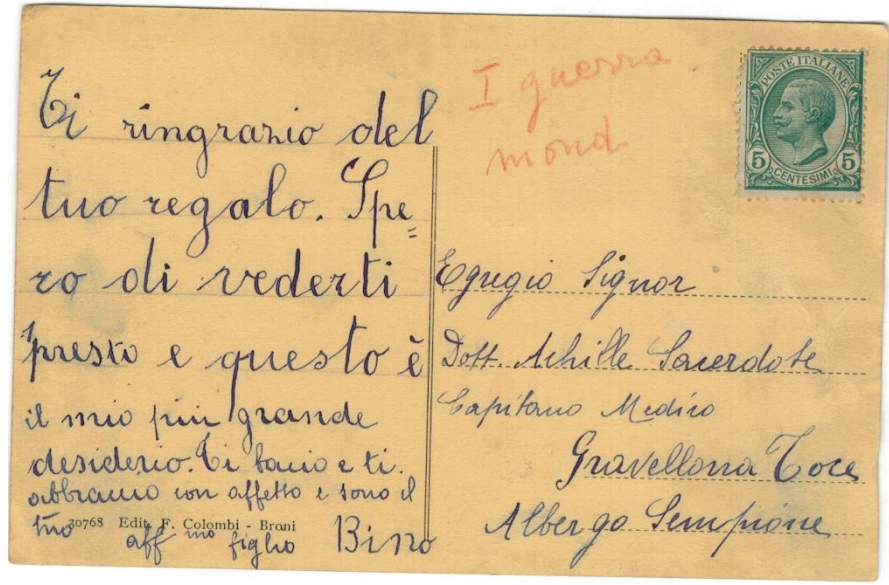 Ti ringrazio del
tuo regalo. Spe=
ro di vederti
presto e questo è
il mio più grande
desiderio. Ti bacio e ti
abbraccio con affetto e sono il
tuo aff mo figlio Bino
30768 Edit. F. Colombi - Broni
I guerra
mond
POSTE ITALIANE
5 CENTESIMI 5
Egregio Signor
Dott. Achille Sacerdote
Capitano Medico
Gravellona Toce
Albergo Sempione